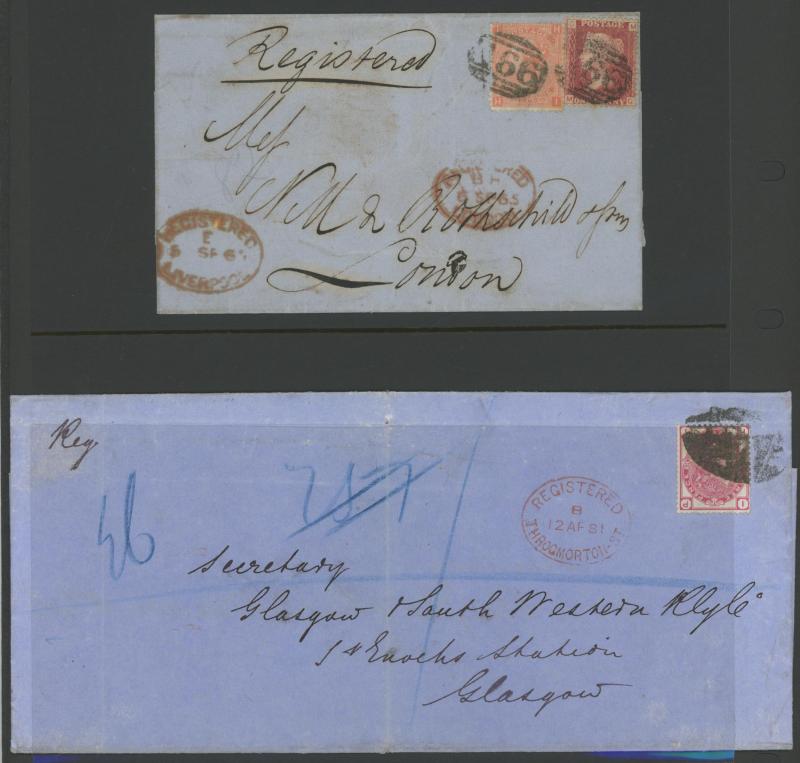 Registered
Mess
N M de Rothschild & Sons
London
REGISTERED
E
5 SP 6
LIVERPOOL
REGISTERED
65
466
466
POSTAGE
Reg
46
757
REGISTERED
B
12 AP 81
THROGMORTON-ST
Secretary
Glasgow & South Western Rly Co
St Enochs Station
Glasgow